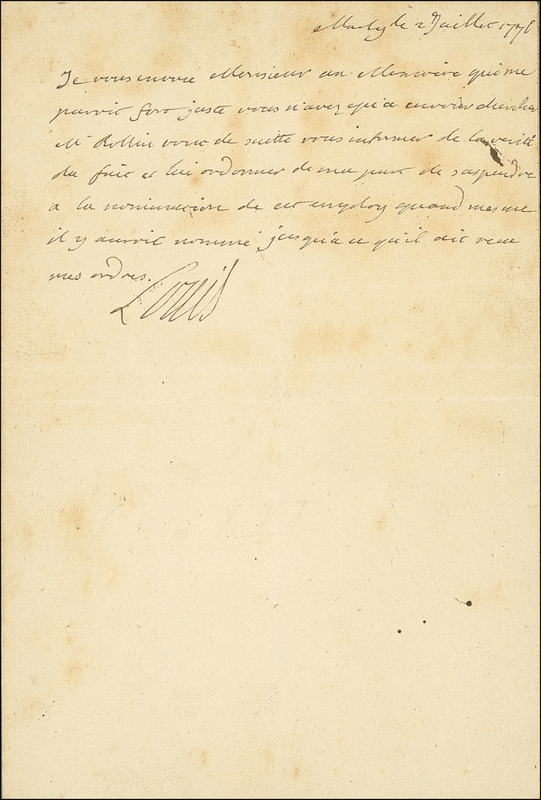 Marly le 2 Juillet 1776
Je vous envoie Monsieur un Memoire qui me
paroit fort juste vous n'avez qu'a envoier chercher
Mr Rollin vous de suitte vous informer de la verité
du fait et lui ordonner de ma part de suspendre
a la nomination de cet employ quand mesme
il y auroit nommé jusqu'a ce qu'il ait receu
mes ordres.
Louis
XVI